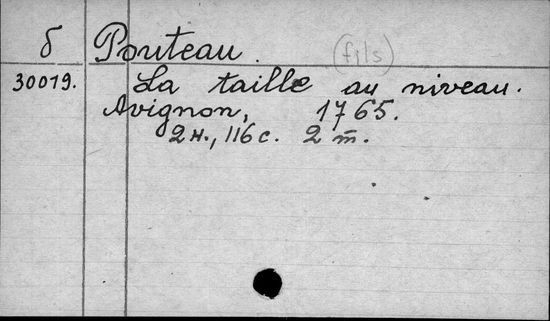 б Pouteau. (fils)
30019. La taille au niveau.
Avignon, 1765.
2 н., 116 с. 2 т.